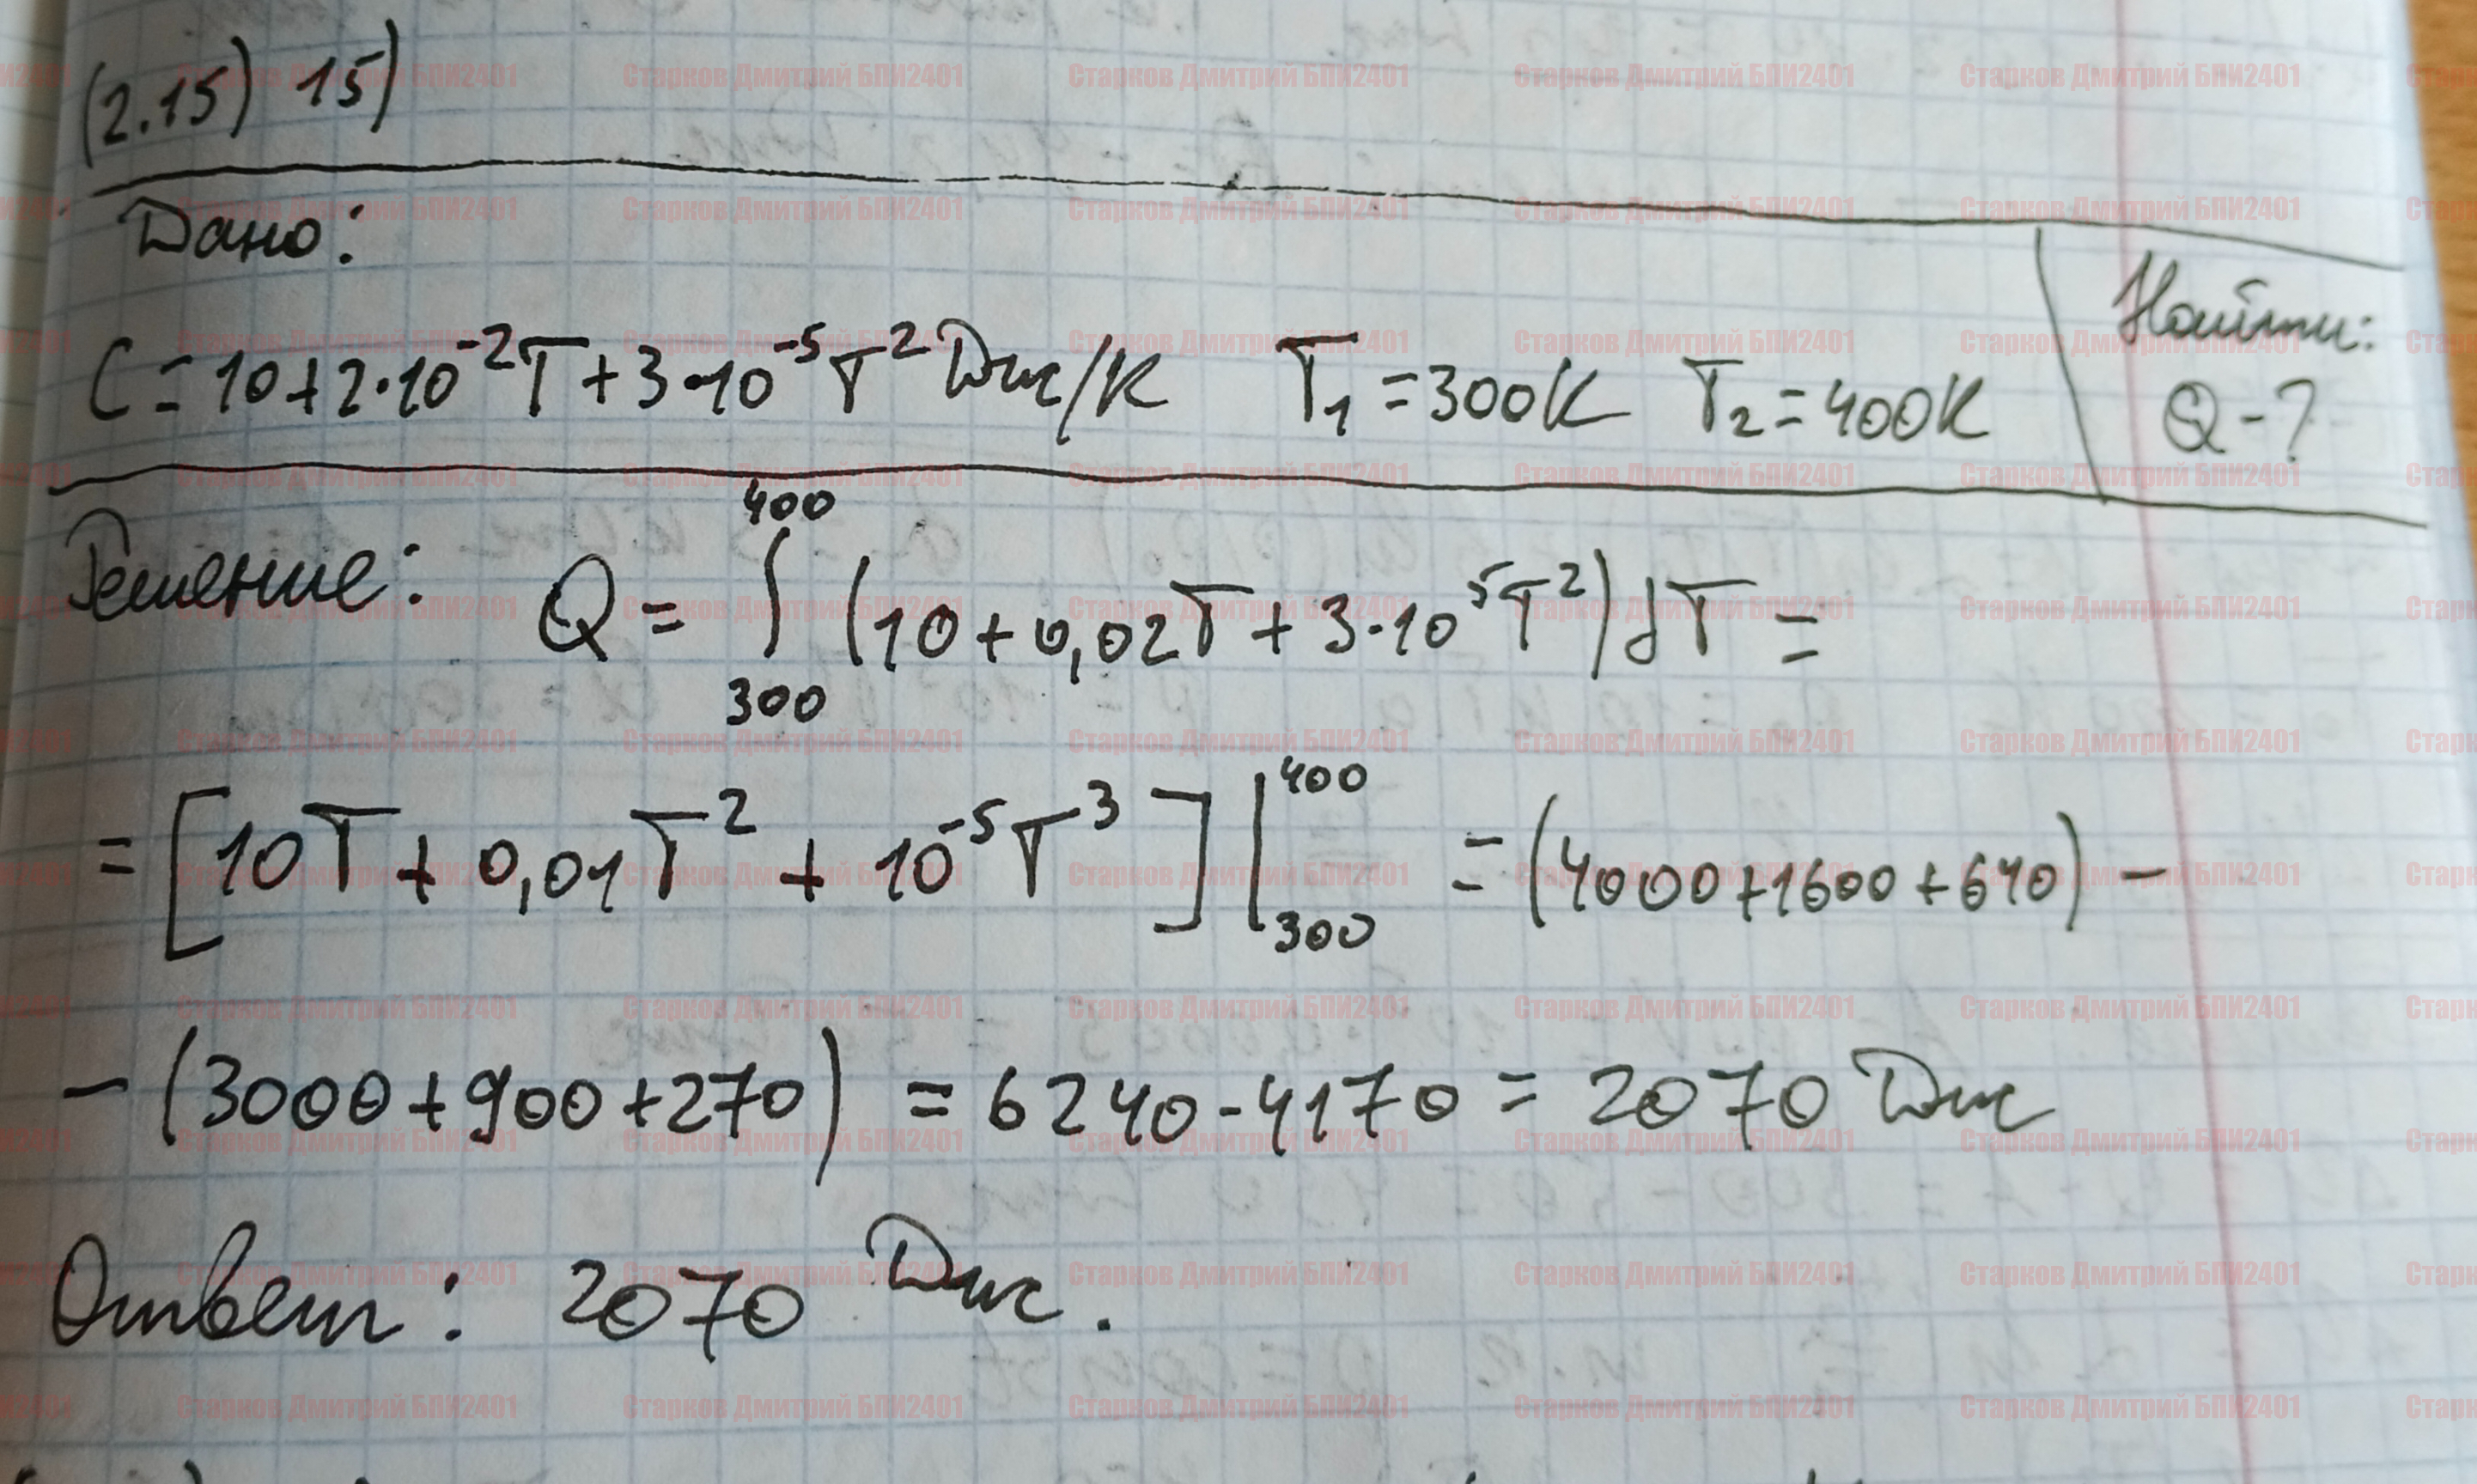 (2.15) 15)
Дано:
C = 10 + 2·10⁻²T + 3·10⁻⁵T² Дж/К T₁ = 300К T₂ = 400К
Найти:
Q - ?
Решение: Q = ∫₃₀₀⁴⁰⁰ (10 + 0,02T + 3·10⁵T²) dT =
= [10T + 0,01T² + 10⁻⁵T³] |₃₀₀⁴⁰⁰ = (4000 + 1600 + 640) -
- (3000 + 900 + 270) = 6240 - 4170 = 2070 Дж
Ответ: 2070 Дж.
Старков Дмитрий БПИ2401